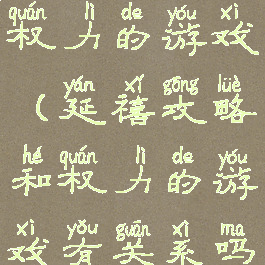 quán lì de yóu xì
权力的游戏
yán xí gōng lüè
(延禧攻略
hé quán lì de yóu
和权力的游
xì yǒu guān xì ma
戏有关系吗